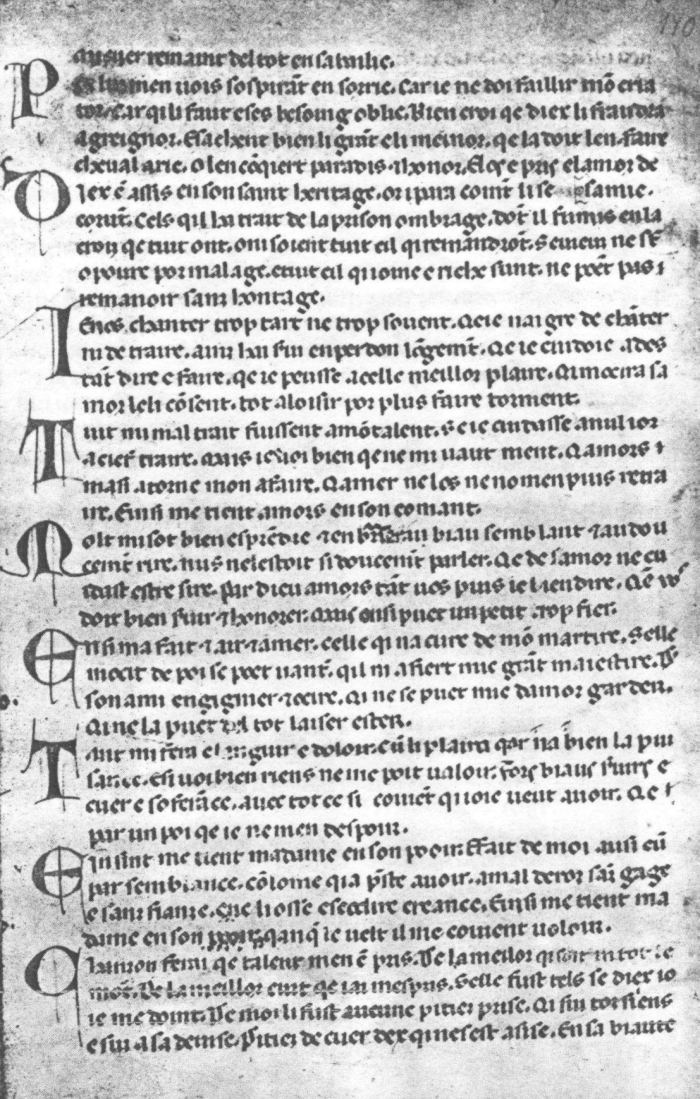 remaint del tot en sa bailie.
Por li men uois sospirãt en sorrie. Car ie ne doi faillir mõ cria
tor. Car qi li faut e ses besoing oblie. Bien croi qe diex li faudra
a greignor. E sachent bien li grãt e li menor. qe la doit len faire
cheualarie. O len cõqiert paradis ⁊ honor. E los e pris e lamor de
Diex ẽ assis en son saint heritage. or i para comẽt li se samie.
corũt. Cels qil ha trait de la prison ombrage. dõt il fu mis en la
crois qe tuit ont. oni soient tuit cil qi remandrõt. Se uiem ne sẽ
o poure por malage. e tuit cil qi ioine e riche sunt. ne poẽt pas i
remanoir sanz hontage.
Ienes. chanter trop tart ne trop souent. Qe ie nai gre de chãter
ni de traire. ainz hai siu en perdon lõgemẽt. Qe ie cuidoie ades
tãt dire e faire. qe ie peusse a celle meillor plaire. Qi mocira sa
mor le li cõsent. tot a loisir por plus faire torment.
Tuit mi mal trait fuissent a mõ talent. Se ie cuidasse a nul ior
a cief traire. Mais ie uoi bien qe ne mi uaut ment. Q amors ⁊
masi atorne mon afaire. Q amer ne los ne no men puis retra
ire. Einsi me tient amors en son comant.
Molt mi sot bien esprẽdre ⁊ en biau semblant ⁊ au dou
cemẽt rire. nus nel estoit si doucemẽt parler. Qe de samor ne cu
idast estre sire. par dieu amors tãt uos puis ie bien dire. Qẽ uos
doit bien siuir ⁊ honorer. Mais ensi puet un petit trop fier.
Ensi ma fait ⁊ air ⁊ amer. celle qi na cure de mõ martire. Selle
mocit de poi se poet uantẽ. qil ni afiert mie grãt maiestire. De
son ami engignier ⁊ ocire. Qi ne se puet mie damor garder.
Qi ne la puet del tot laiser ester.
Tant mi fera languir e doloir. cũ li plaira qar na bien la pui
sance. Esi uoi bien riens ne me poit ualoir. fors biaus seruirs e
cuer e soferãce. auec tot ce si couiẽt qi ioie ueut auoir. Qe i
par un poi qe ie ne men despoir.
Ensint me tient ma dame en son pooir. E fait de moi ausi cũ
par semblance. cõ lome qi a p̃ste auoir. a mal detor saĩ gage
e sanz fianze. Qe li osse escodire creance. Einsi me tient ma
dame en son pooir. qan qĩ le uelt il me couient uoloir.
Chanzon ferai qe talent men ẽ pris. De la meillor qi soit in tot le
mõt. De la meillor cuit qe iai mespris. Selle fust tels se diex io
ie me doint. De moi li fust aucune pitiez prise. Qi sui toz siens
e sui a sa deuise. Pitiez de cuer dex qi nes est asise. En sa biaute